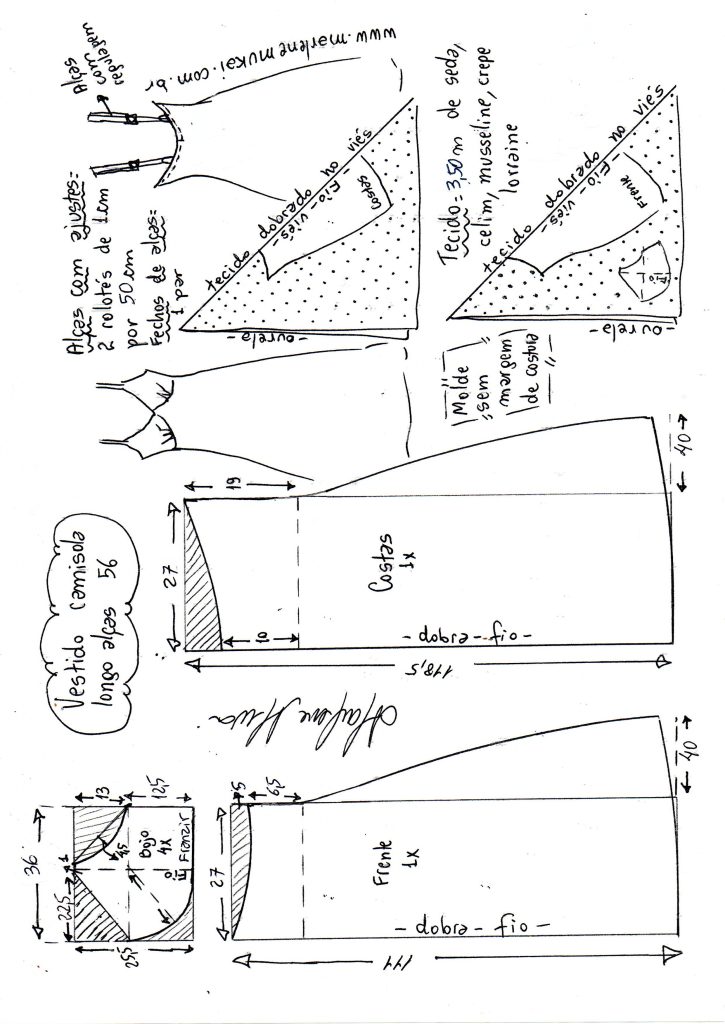 Vestido camisola
longo alças 56
Alças com ajustes:
2 rolotês de 1cm
por 50cm
Fechos de alças:
1 par
Alças
com
regulagem
www.marlenemukai.com.br
tecido dobrado no viés
-fio-viés-
costas
-ourela-
Tecido = 3,50m de seda,
cetim, musseline, crepe
lorraine
tecido dobrado no viés
-fio-viés-
Frente
fio
-ourela-
Molde
sem
margem
de costura
36
22,5
1
13
12,5
25,5
4,5
Bojo
4x
Fio
Franzir
27
19
10
Costas
1x
- fio - dobra -
118,5
40
27
5
6,5
Frente
1x
- fio - dobra -
111
40